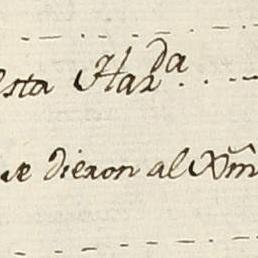 esta Haz.da
se dieron al Xm̃